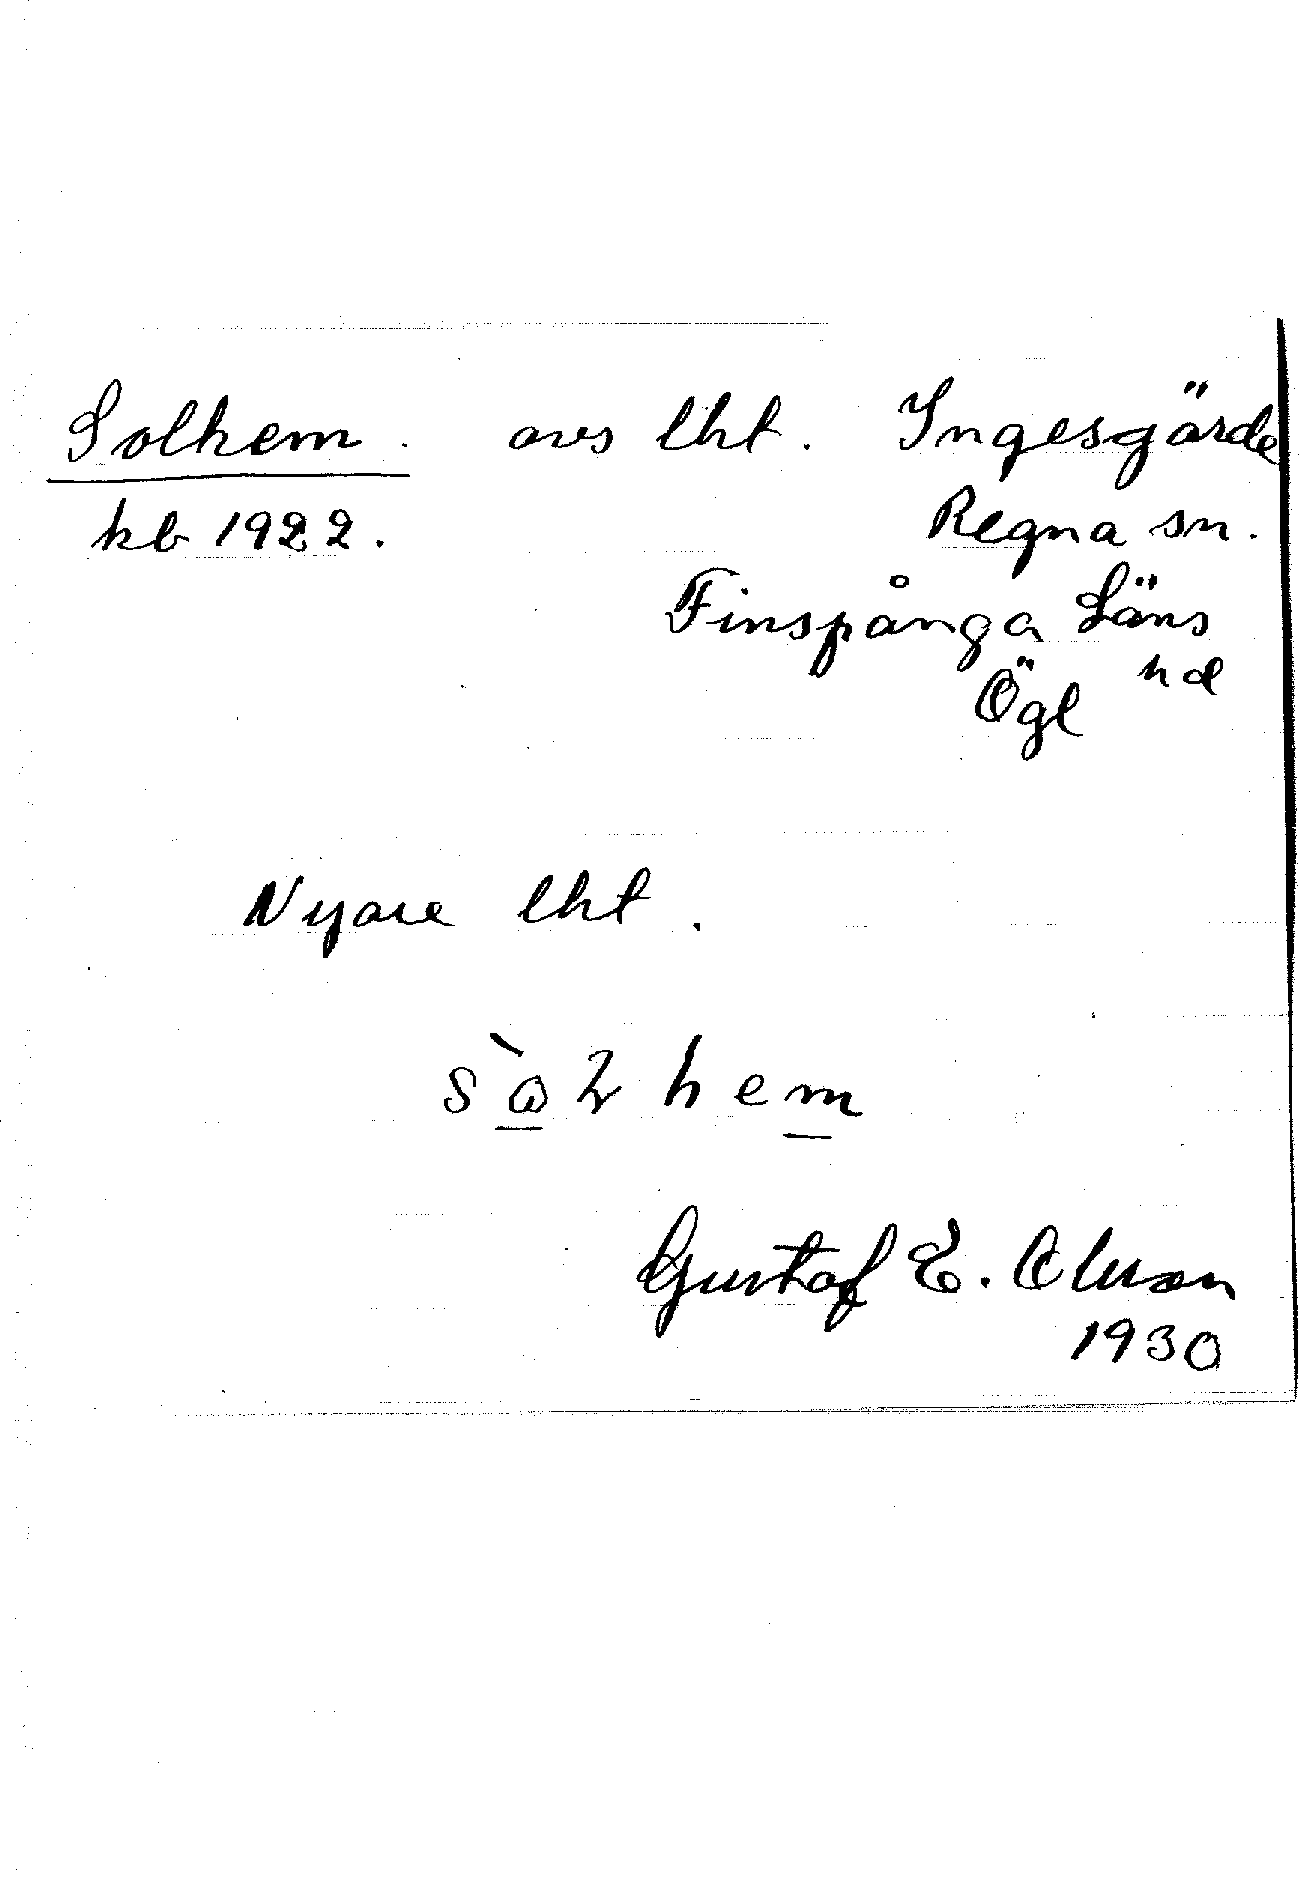 Solhem. avs lht. Ingesgärde
kb 1922. Regna sn.
Finspånga Läns
hd
Ögl
Nyare lht.
Gustaf E. Olsson
1930